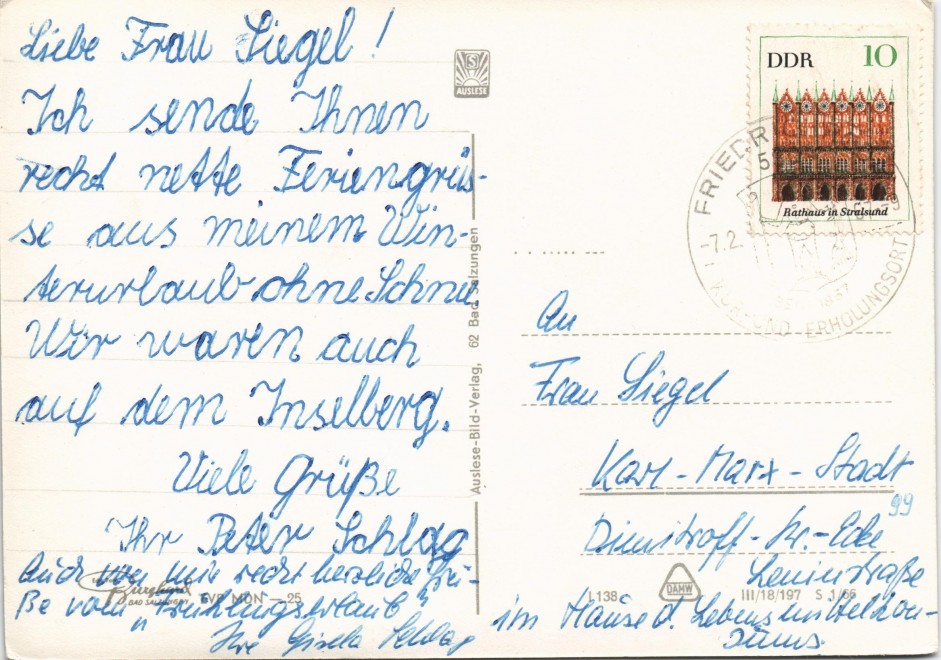 Liebe Frau Siegel!
Ich sende Ihnen
recht nette Feriengrüs-
se aus meinem Win-
terurlaub ohne Schnee.
Wir waren auch
auf dem Inselberg.
Viele Grüße
Ihr Peter Schlag
Auch von mir recht herzliche Grü-
ße vom "Frühlingsurlaub"
Ihre Gisela Schlag
BAD SALZUNGEN
EVP MDN —.25
S
AUSLESE
Auslese-Bild-Verlag, 62 Bad Salzungen
DDR 10
Rathaus in Stralsund
FRIEDR
5
-7.2.
KUR- UND ERHOLUNGSORT
An
Frau Siegel
Karl-Marx-Stadt
99
Dimitroff-Str.-Ecke
Leninstraße
im Hause d. Lebensmittelkon-
sums.
L 138
DAMW
III/18/197 S 1/66